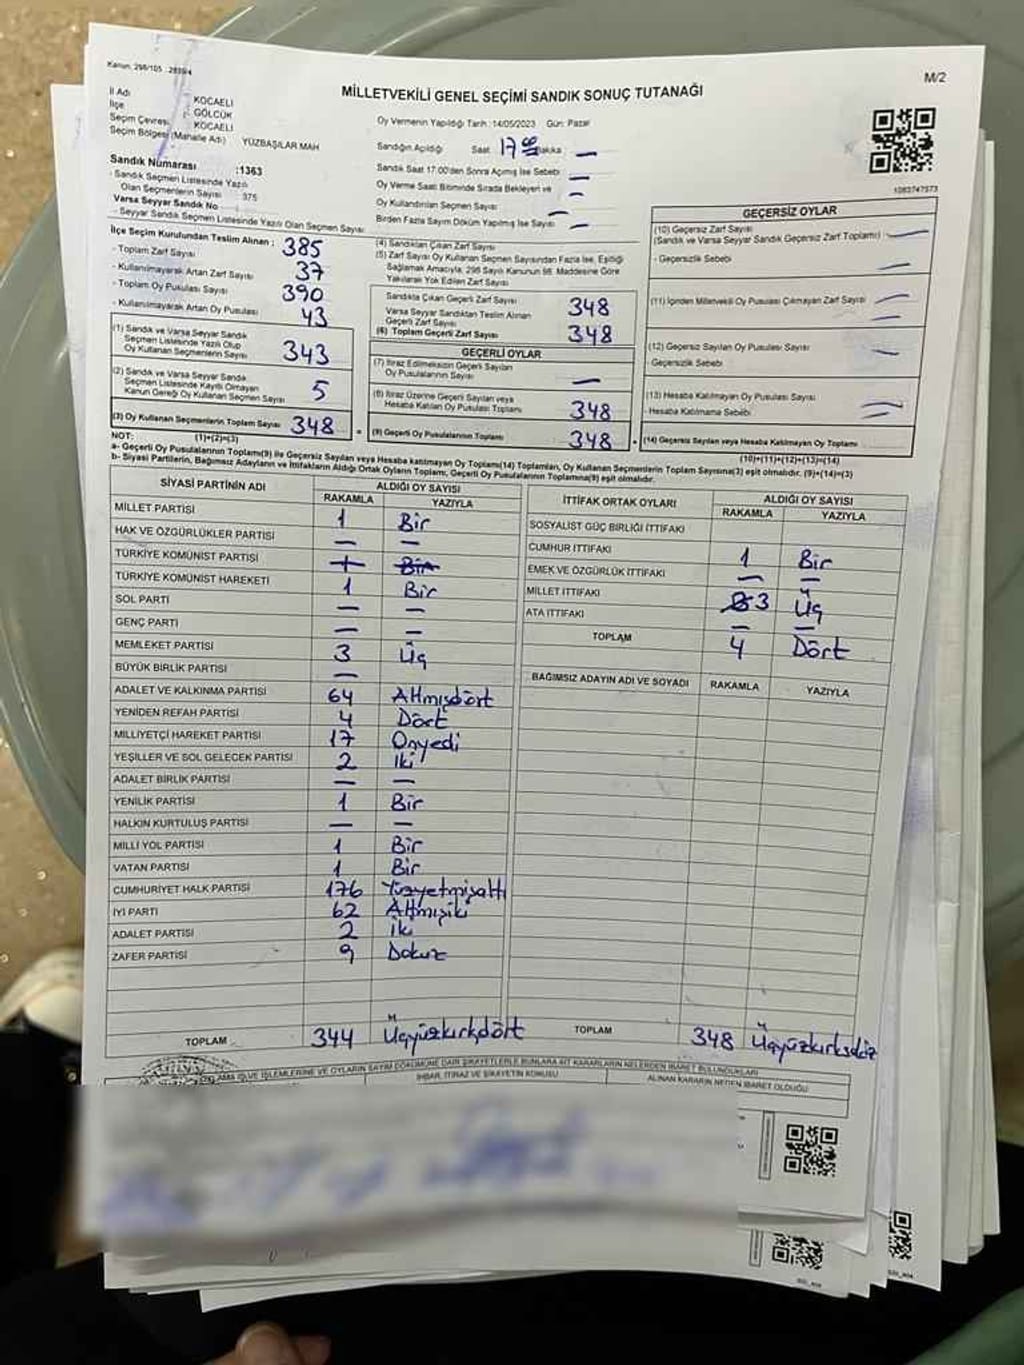 Kanun: 298/105 : 2839/4
M/2
MİLLETVEKİLİ GENEL SEÇİMİ SANDIK SONUÇ TUTANAĞI
İl Adı : KOCAELİ
İlçe : GÖLCÜK
Seçim Çevresi : KOCAELİ
Seçim Bölgesi (Mahalle Adı) YÜZBAŞILAR MAH
Sandık Numarası :1363
- Sandık Seçmen Listesinde Yazılı
Olan Seçmenlerin Sayısı : 375
Varsa Seyyar Sandık No
- Seyyar Sandık Seçmen Listesinde Yazılı Olan Seçmen Sayısı:
Oy Vermenin Yapıldığı Tarih: 14/05/2023 Gün: Pazar
Sandığın Açıldığı Saat: 17 00 Dakika : —
Sandık Saat 17:00'den Sonra Açılmış İse Sebebi —
Oy Verme Saati Bitiminde Sırada Bekleyen ve
Oy Kullandırılan Seçmen Sayısı —
Birden Fazla Sayım Döküm Yapılmış İse Sayısı —
1083747573
İlçe Seçim Kurulundan Teslim Alınan :
- Toplam Zarf Sayısı 385
- Kullanılmayarak Artan Zarf Sayısı 37
- Toplam Oy Pusulası Sayısı 390
- Kullanılmayarak Artan Oy Pusulası 43
(1) Sandık ve Varsa Seyyar Sandık
Seçmen Listesinde Yazılı Olup
Oy Kullanan Seçmenlerin Sayısı 343
(2) Sandık ve Varsa Seyyar Sandık
Seçmen Listesinde Kayıtlı Olmayan
Kanun Gereği Oy Kullanan Seçmen Sayısı 5
(3) Oy Kullanan Seçmenlerin Toplam Sayısı 348
(1)+(2)=(3)
(4) Sandıktan Çıkan Zarf Sayısı
(5) Zarf Sayısı Oy Kullanan Seçmen Sayısından Fazla İse, Eşitliği
Sağlamak Amacıyla, 298 Sayılı Kanunun 98. Maddesine Göre
Yakılarak Yok Edilen Zarf Sayısı
Sandıkta Çıkan Geçerli Zarf Sayısı 348
Varsa Seyyar Sandıktan Teslim Alınan
Geçerli Zarf Sayısı
(6) Toplam Geçerli Zarf Sayısı 348
GEÇERLİ OYLAR
(7) İtiraz Edilmeksizin Geçerli Sayılan
Oy Pusulalarının Sayısı —
(8) İtiraz Üzerine Geçerli Sayılan veya
Hesaba Katılan Oy Pusulası Toplamı 348
(9) Geçerli Oy Pusulalarının Toplamı 348
GEÇERSİZ OYLAR
(10) Geçersiz Zarf Sayısı
(Sandık ve Varsa Seyyar Sandık Geçersiz Zarf Toplamı) : —
- Geçersizlik Sebebi —
(11) İçinden Milletvekili Oy Pusulası Çıkmayan Zarf Sayısı —
(12) Geçersiz Sayılan Oy Pusulası Sayısı —
- Geçersizlik Sebebi
(13) Hesaba Katılmayan Oy Pusulası Sayısı —
- Hesaba Katılmama Sebebi —
(14) Geçersiz Sayılan veya Hesaba Katılmayan Oy Toplamı
(10)+(11)+(12)+(13)=(14)
NOT:
a- Geçerli Oy Pusulalarının Toplamı(9) ile Geçersiz Sayılan veya Hesaba katılmayan Oy Toplamı(14) Toplamları, Oy Kullanan Seçmenlerin Toplam Sayısına(3) eşit olmalıdır. (9)+(14)=(3)
b- Siyasi Partilerin, Bağımsız Adayların ve İttifakların Aldığı Ortak Oyların Toplamı, Geçerli Oy Pusulalarının Toplamına(9) eşit olmalıdır.
SİYASİ PARTİNİN ADI ALDIĞI OY SAYISI
RAKAMLA YAZIYLA
MİLLET PARTİSİ 1 Bir
HAK VE ÖZGÜRLÜKLER PARTİSİ — —
TÜRKİYE KOMÜNİST PARTİSİ 1 Bir
TÜRKİYE KOMÜNİST HAREKETİ 1 Bir
SOL PARTİ — —
GENÇ PARTİ — —
MEMLEKET PARTİSİ 3 Üç
BÜYÜK BİRLİK PARTİSİ —
ADALET VE KALKINMA PARTİSİ 64 Altmışdört
YENİDEN REFAH PARTİSİ 4 Dört
MİLLİYETÇİ HAREKET PARTİSİ 17 Onyedi
YEŞİLLER VE SOL GELECEK PARTİSİ 2 İki
ADALET BİRLİK PARTİSİ — —
YENİLİK PARTİSİ 1 Bir
HALKIN KURTULUŞ PARTİSİ — —
MİLLİ YOL PARTİSİ 1 Bir
VATAN PARTİSİ 1 Bir
CUMHURİYET HALK PARTİSİ 176 Yüzyetmişaltı
İYİ PARTİ 62 Altmışiki
ADALET PARTİSİ 2 İki
ZAFER PARTİSİ 9 Dokuz
TOPLAM 344 Üçyüzkırkdört
İTTİFAK ORTAK OYLARI ALDIĞI OY SAYISI
RAKAMLA YAZIYLA
SOSYALİST GÜÇ BİRLİĞİ İTTİFAKI
CUMHUR İTTİFAKI 1 Bir
EMEK VE ÖZGÜRLÜK İTTİFAKI — —
MİLLET İTTİFAKI 3 Üç
ATA İTTİFAKI — —
TOPLAM 4 Dört
BAĞIMSIZ ADAYIN ADI VE SOYADI RAKAMLA YAZIYLA
TOPLAM 348 Üçyüzkırksekiz
İŞ VE İŞLEMLERİNE VE OYLARIN SAYIM DÖKÜMÜNE DAİR ŞİKAYETLERLE BUNLARA AİT KARARLARIN NELERDEN İBARET BULUNDUKLARI
İHBAR, İTİRAZ VE ŞİKAYETİN KONUSU ALINAN KARARIN NEDEN İBARET OLDUĞU